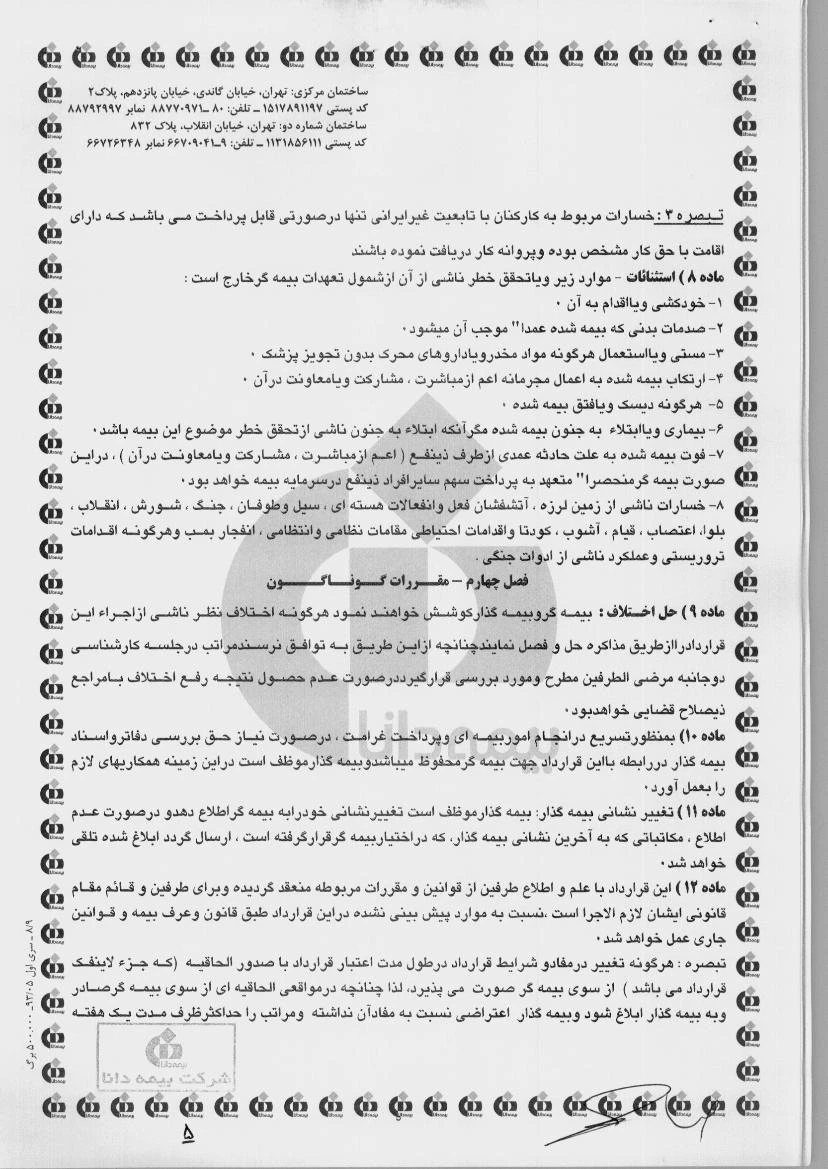 ساختمان مرکزی: تهران، خیابان گاندی، خیابان پانزدهم، پلاک۲
کد پستی ۱۵۱۷۸۹۱۱۹۷ ــ تلفن: ۸۰ ــ۸۸۷۷۰۹۷۱ نمابر ۸۸۷۹۲۹۹۷
ساختمان شماره دو: تهران، خیابان انقلاب، پلاک ۸۳۲
کد پستی ۱۱۳۱۸۵۶۱۱۱ ــ تلفن: ۹ــ۶۶۷۰۹۰۴۱ نمابر ۶۶۷۲۶۳۴۸
تبصره ۳ : خسارات مربوط به کارکنان با تابعیت غیرایرانی تنها درصورتی قابل پرداخت می باشد که دارای
اقامت با حق کار مشخص بوده وپروانه کار دریافت نموده باشند
ماده ۸ ) استثنائات - موارد زیر ویاتحقق خطر ناشی از آن ازشمول تعهدات بیمه گرخارج است :
۱- خودکشی ویااقدام به آن ۰
۲- صدمات بدنی که بیمه شده عمدا" موجب آن میشود ۰
۳- مستی ویااستعمال هرگونه مواد مخدرویاداروهای محرک بدون تجویز پزشک ۰
۴- ارتکاب بیمه شده به اعمال مجرمانه اعم ازمباشرت ، مشارکت ویامعاونت درآن ۰
۵- هرگونه دیسک ویافتق بیمه شده ۰
۶- بیماری ویاابتلاء به جنون بیمه شده مگرآنکه ابتلاء به جنون ناشی ازتحقق خطر موضوع این بیمه باشد۰
۷- فوت بیمه شده به علت حادثه عمدی ازطرف ذینفع ( اعم ازمباشرت ، مشارکت ویامعاونت درآن ) ، دراین
صورت بیمه گرمنحصرا" متعهد به پرداخت سهم سایرافراد ذینفع درسرمایه بیمه خواهد بود ۰
۸- خسارات ناشی از زمین لرزه ، آتشفشان فعل وانفعالات هسته ای ، سیل وطوفان ، جنگ ، شورش ، انقلاب ،
بلوا، اعتصاب ، قیام ، آشوب ، کودتا واقدامات احتیاطی مقامات نظامی وانتظامی ، انفجار بمب وهرگونه اقدامات
تروریستی وعملکرد ناشی از ادوات جنگی .
فصل چهارم – مقررات گوناگون
ماده ۹ ) حل اختلاف : بیمه گروبیمه گذارکوشش خواهند نمود هرگونه اختلاف نظر ناشی ازاجراء این
قراردادراازطریق مذاکره حل و فصل نمایندچنانچه ازاین طریق به توافق نرسندمراتب درجلسه کارشناسی
دوجانبه مرضی الطرفین مطرح ومورد بررسی قرارگیرددرصورت عدم حصول نتیجه رفع اختلاف بامراجع
ذیصلاح قضایی خواهدبود۰
ماده ۱۰) بمنظورتسریع درانجام اموربیمه ای وپرداخت غرامت ، درصورت نیاز حق بررسی دفاترواسناد
بیمه گذار دررابطه بااین قرارداد جهت بیمه گرمحفوظ میباشدوبیمه گذارموظف است دراین زمینه همکاریهای لازم
را بعمل آورد۰
ماده ۱۱ ) تغییر نشانی بیمه گذار: بیمه گذارموظف است تغییرنشانی خودرابه بیمه گراطلاع دهدو درصورت عدم
اطلاع ، مکاتباتی که به آخرین نشانی بیمه گذار، که دراختیاربیمه گرقرارگرفته است ، ارسال گردد ابلاغ شده تلقی
خواهد شد ۰
ماده ۱۲ ) این قرارداد با علم و اطلاع طرفین از قوانین و مقررات مربوطه منعقد گردیده وبرای طرفین و قائم مقام
قانونی ایشان لازم الاجرا است ،نسبت به موارد پیش بینی نشده دراین قرارداد طبق قانون وعرف بیمه و قوانین
جاری عمل خواهد شد ۰
تبصره : هرگونه تغییر درمفادو شرایط قرارداد درطول مدت اعتبار قرارداد با صدور الحاقیه (که جزء لاینفک
قرارداد می باشد ) از سوی بیمه گر صورت می پذیرد، لذا چنانچه درمواقعی الحاقیه ای از سوی بیمه گرصادر
وبه بیمه گذار ابلاغ شود وبیمه گذار اعتراضی نسبت به مفادآن نداشته ومراتب را حداکثرظرف مدت یک هفته
بیمه دانا
شرکت بیمه دانا
۸/۹ ــ سری اول ۹۳/۰۵ــ ۵۰۰,۰۰۰ برگ
۵